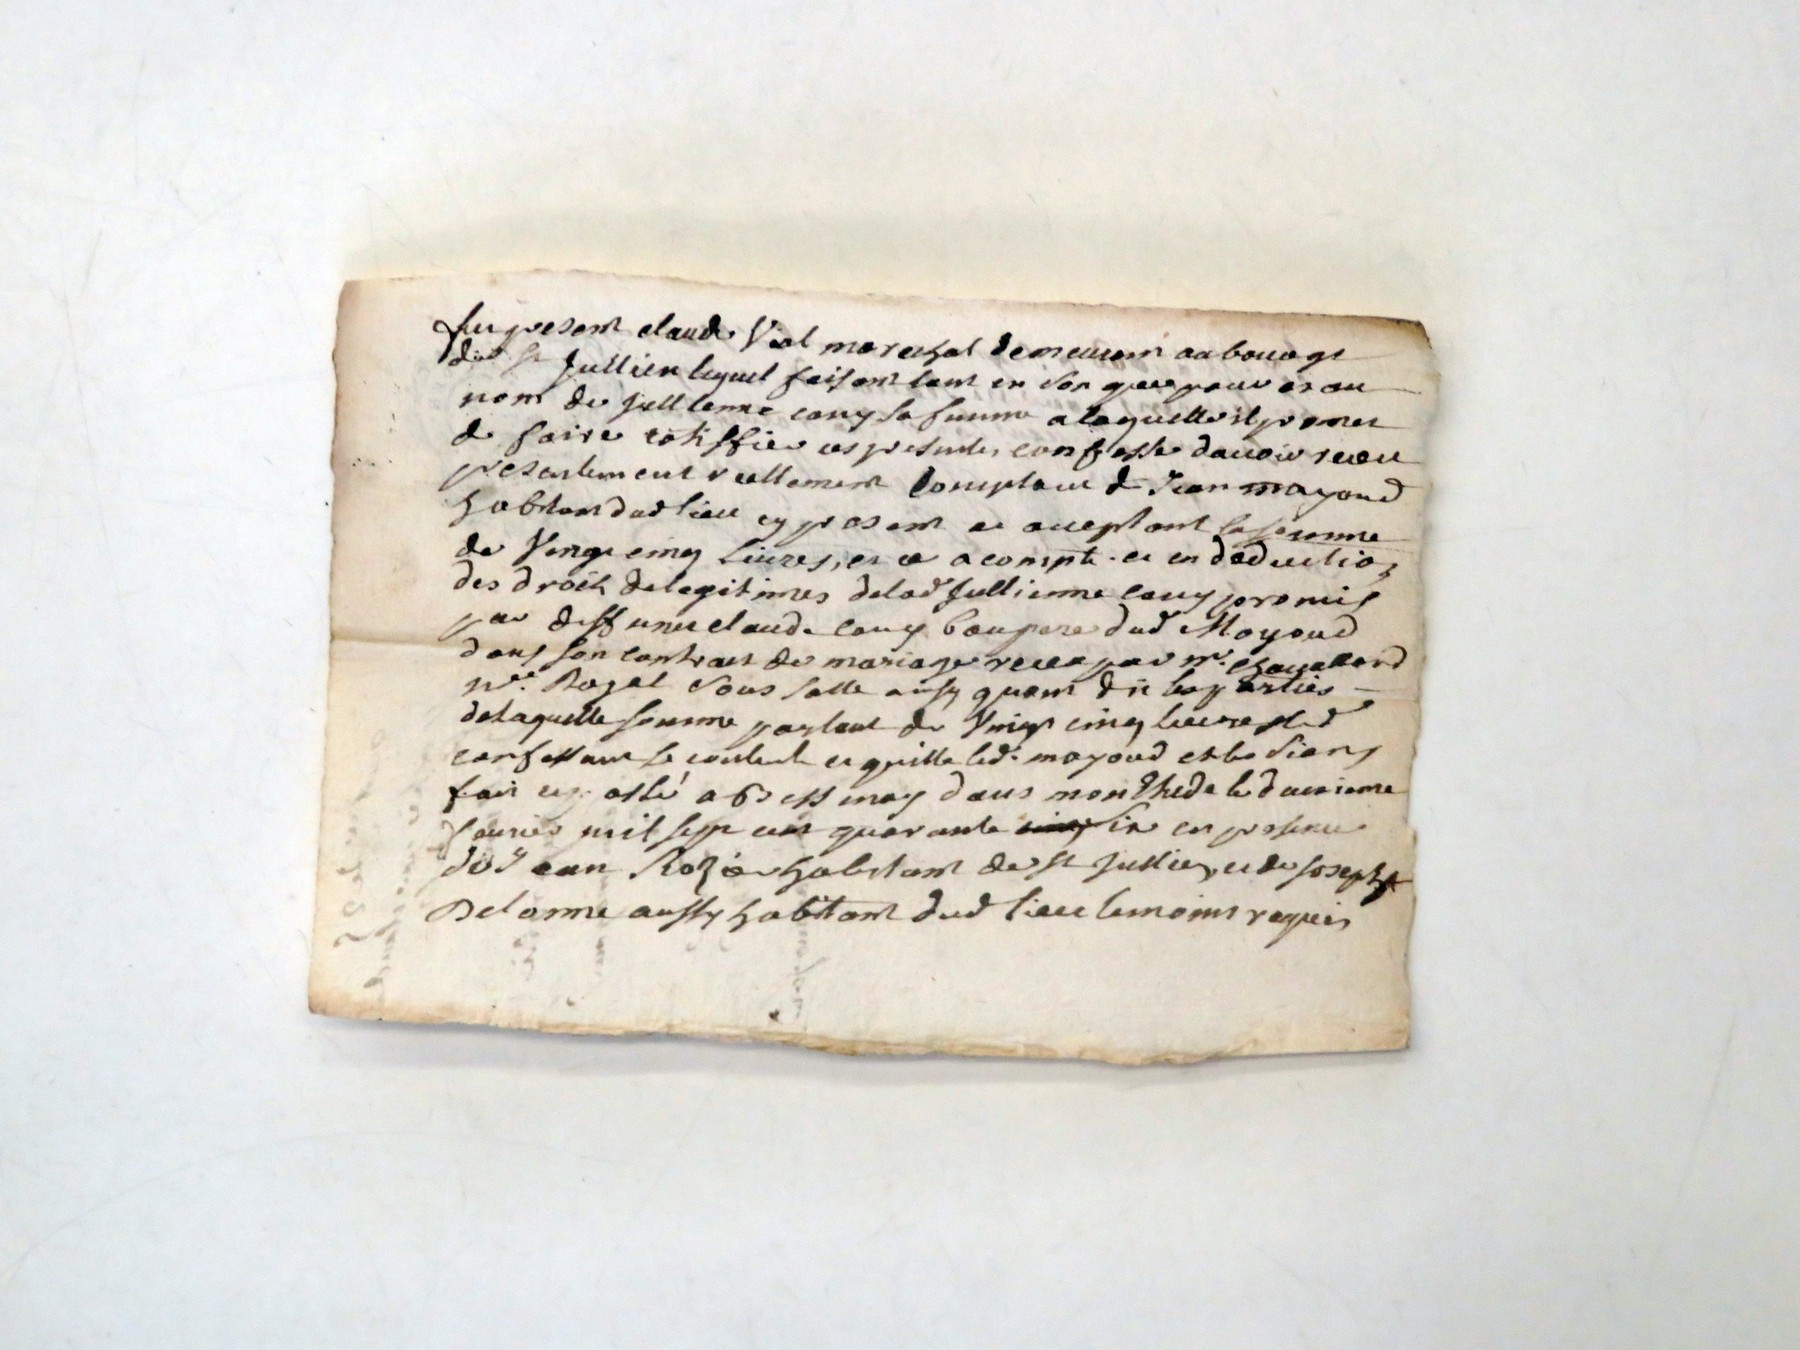 fut present claude Vial mareschal demeurant au bourgt
de st Jullien lequel faisant tant en son que pour et au
nom de Jullienne couy sa femme a laquelle il promet
de faire ratiffier ces presentes confesse davoir receu
presentement reellement comptant de Jean mayoud
habitant dud lieu cy present et acceptant la somme
de Vingt cinq livres, et ce a compte et en deduction
des droits de legitimes de lad Jullienne couy promis
par deffunct claude couy beaupere dud Mayoud
dans son contrait de mariage receu par mr.
nre. Royal sous sa datte aussy quont dit les parties
de laquelle somme partant de Vingt cinq livres led
confessant se contente et quitte led. mayoud et les siens
fait et passé a bessenay dans mon Ettude le deuxieme
febvrier mil sept cent quarante six en presence
de Jean habitant de st Jullien, et de joseph
Delorme aussy habitant dud lieu temoins requis